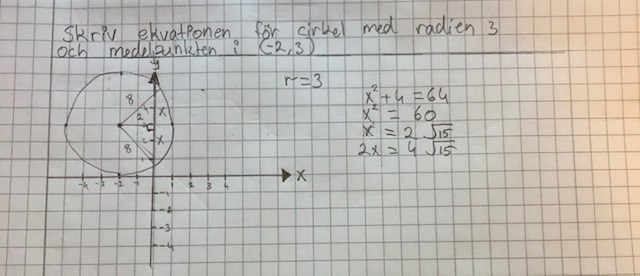 Skriv ekvationen för cirkel med radien 3
och medelpunkten i (-2,3)
y
r=3
8
2
x
x
8
x² + 4 = 64
x² = 60
x = 2 √15
2x = 4 √15
-4 -3 -2 -1 1 2 3 4 X
-1
-2
-3
-4